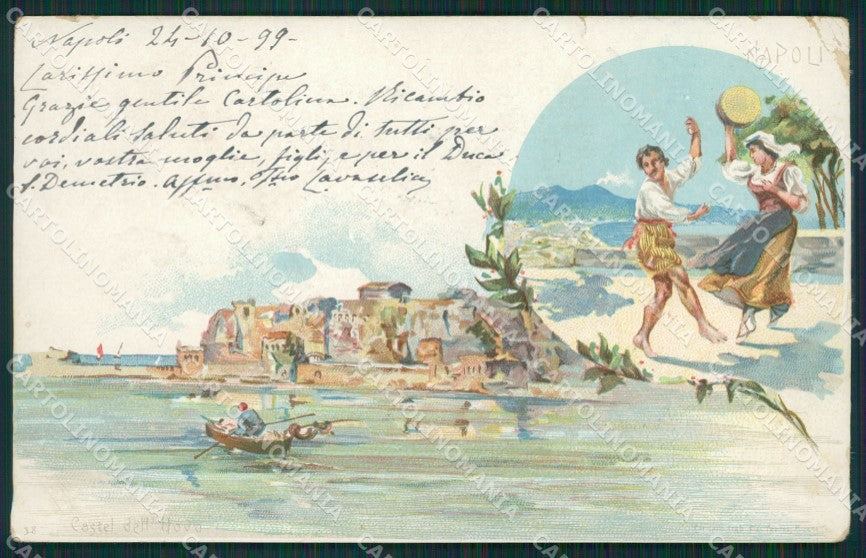 Napoli 24-10-99-
NAPOLI
Carissimo Principe
Grazie gentile Cartolina. Ricambio
cordiali saluti da parte di tutti per
voi, vostra moglie, figli, e per il Duca
S. Demetrio. Affmo.
38
Castel dell'Uovo
CARTOLINOMANIA